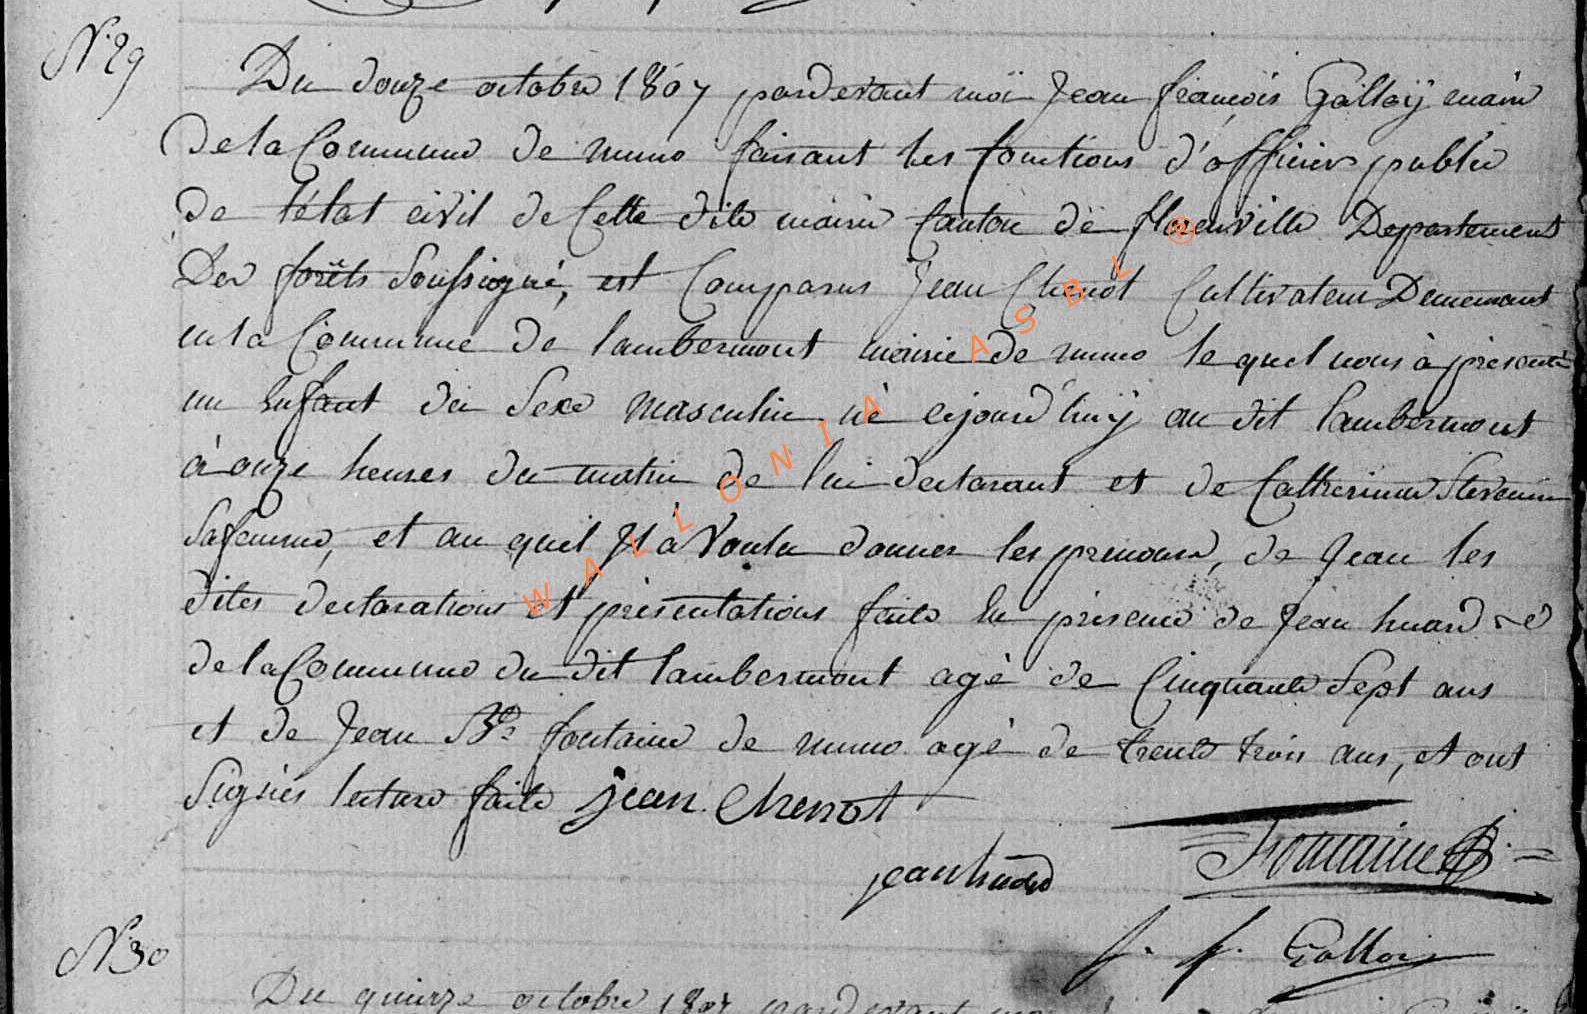 N.° 29
Du douze octobre 1807 pardevant moi Jean françois Galloÿ maire
De la Commune de muno faisant les fonctions d'officier public
de l'état civil de Cette dite mairie Canton de florenville Departement
Des forêts Soussigné, est Comparus Jean Chenot Cultivateur Demeurant
en la Commune de lambermont mairie de muno le quel nous à présenté
un Enfant du Sexe masculin né cejourd'huÿ au dit lambermont
à onze heures du matin de lui declarant et de Catherinne Stevenin
Sa femme, et au quel Jl à Voulu donner les prenoms, de Jean les
dites declarations et présentations faite En présence de Jean huard
de la Commune du dit lambermont agé de Cinquante Sept ans
et de Jean Bte fontaine de muno agé de trente trois ans, et ont
Signés lecture faite jean Chenot
jean huard
Fontaine
J. f. Gallois
N.° 30
Du quinze octobre 1807 pardevant moi
WALLONIA ASBL ®